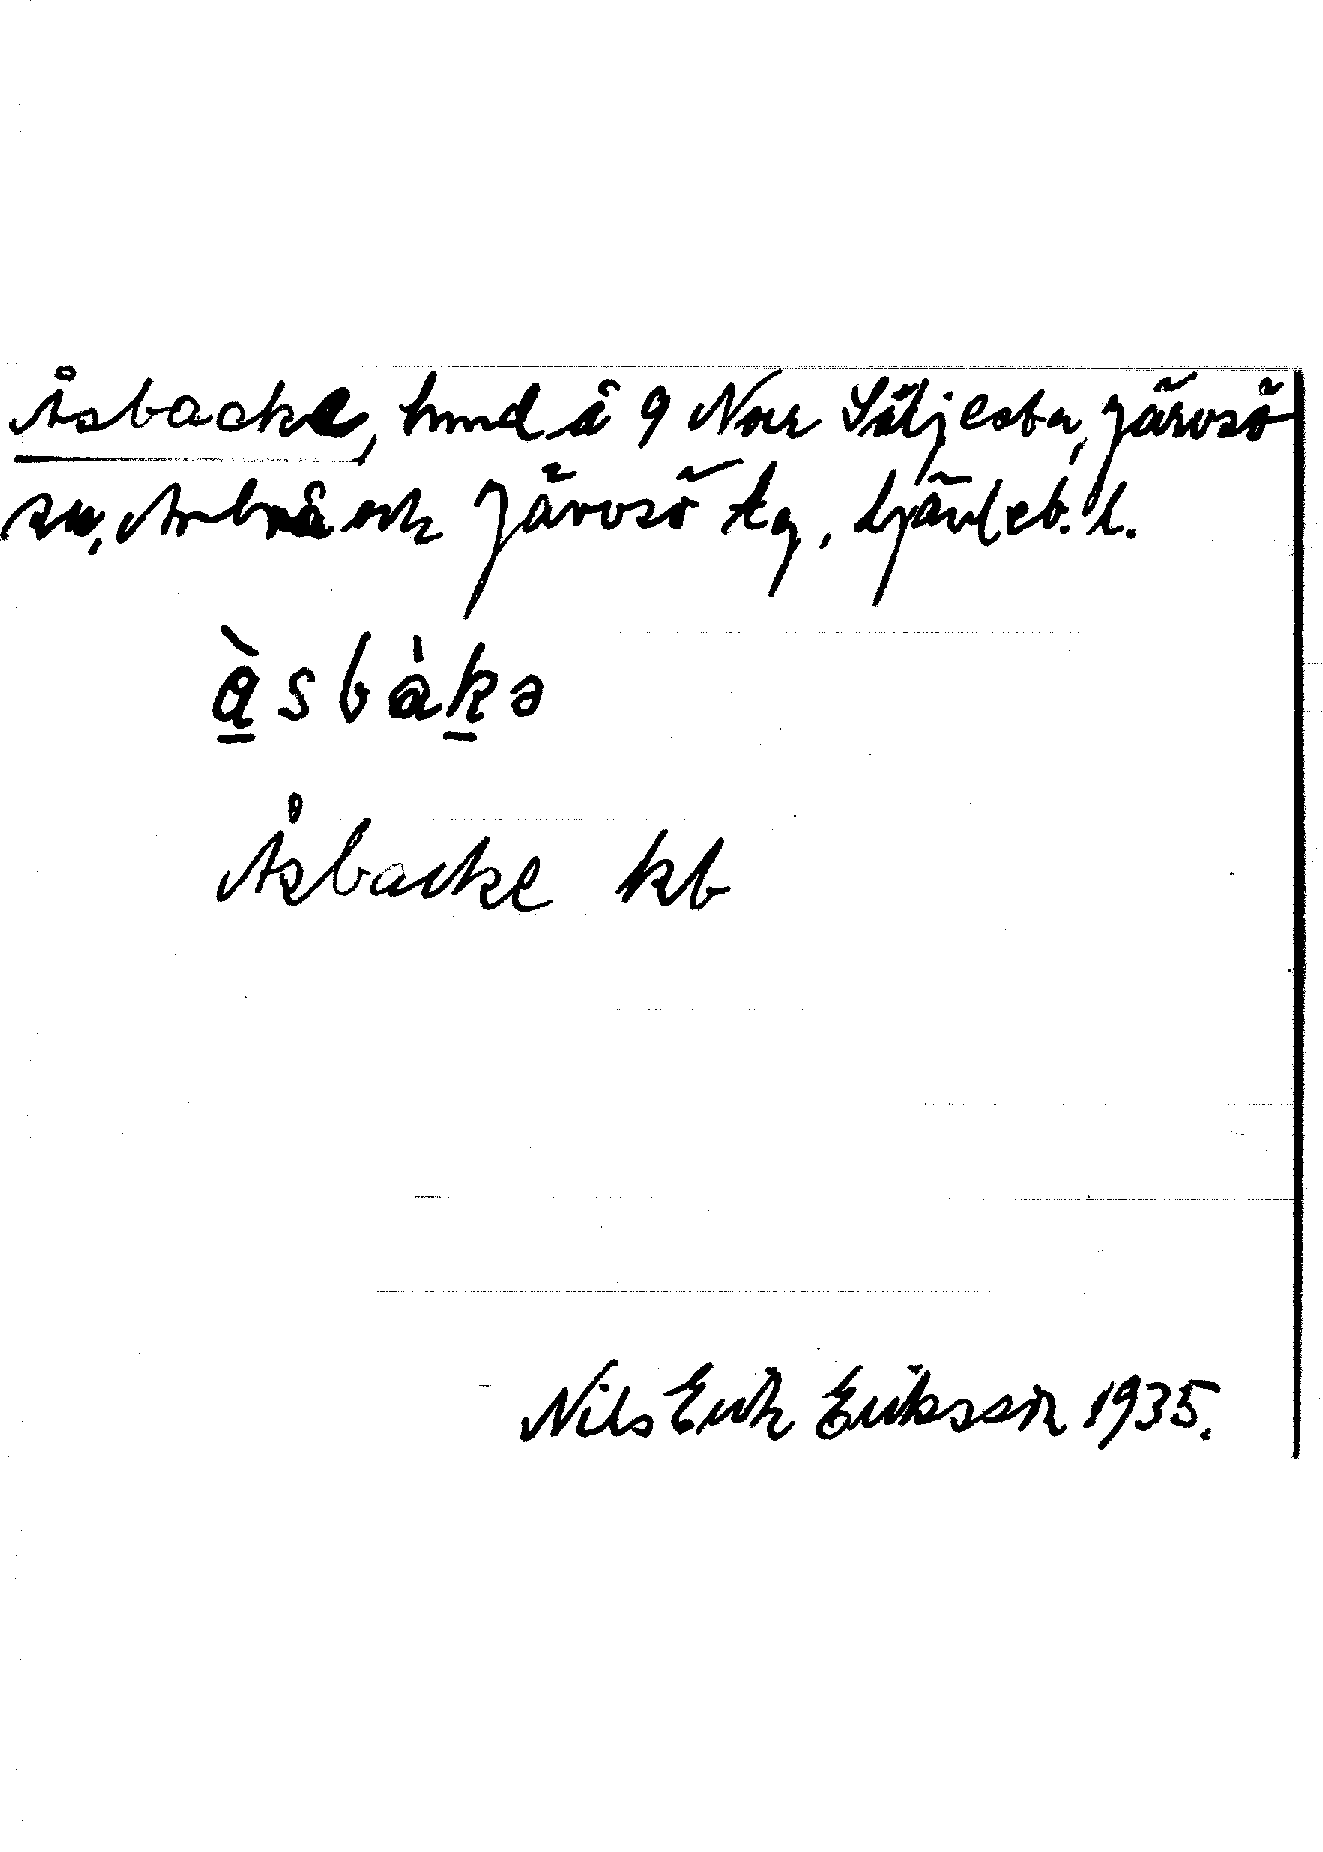 Åsbacke, hmd å 9 Norr Säljesta, Järvsö
sn, Arbrå och Järvsö tg, Gävleb. l.
à̱sbàḵə
Åsbacke kb
Nils Erik Eriksson 1935.